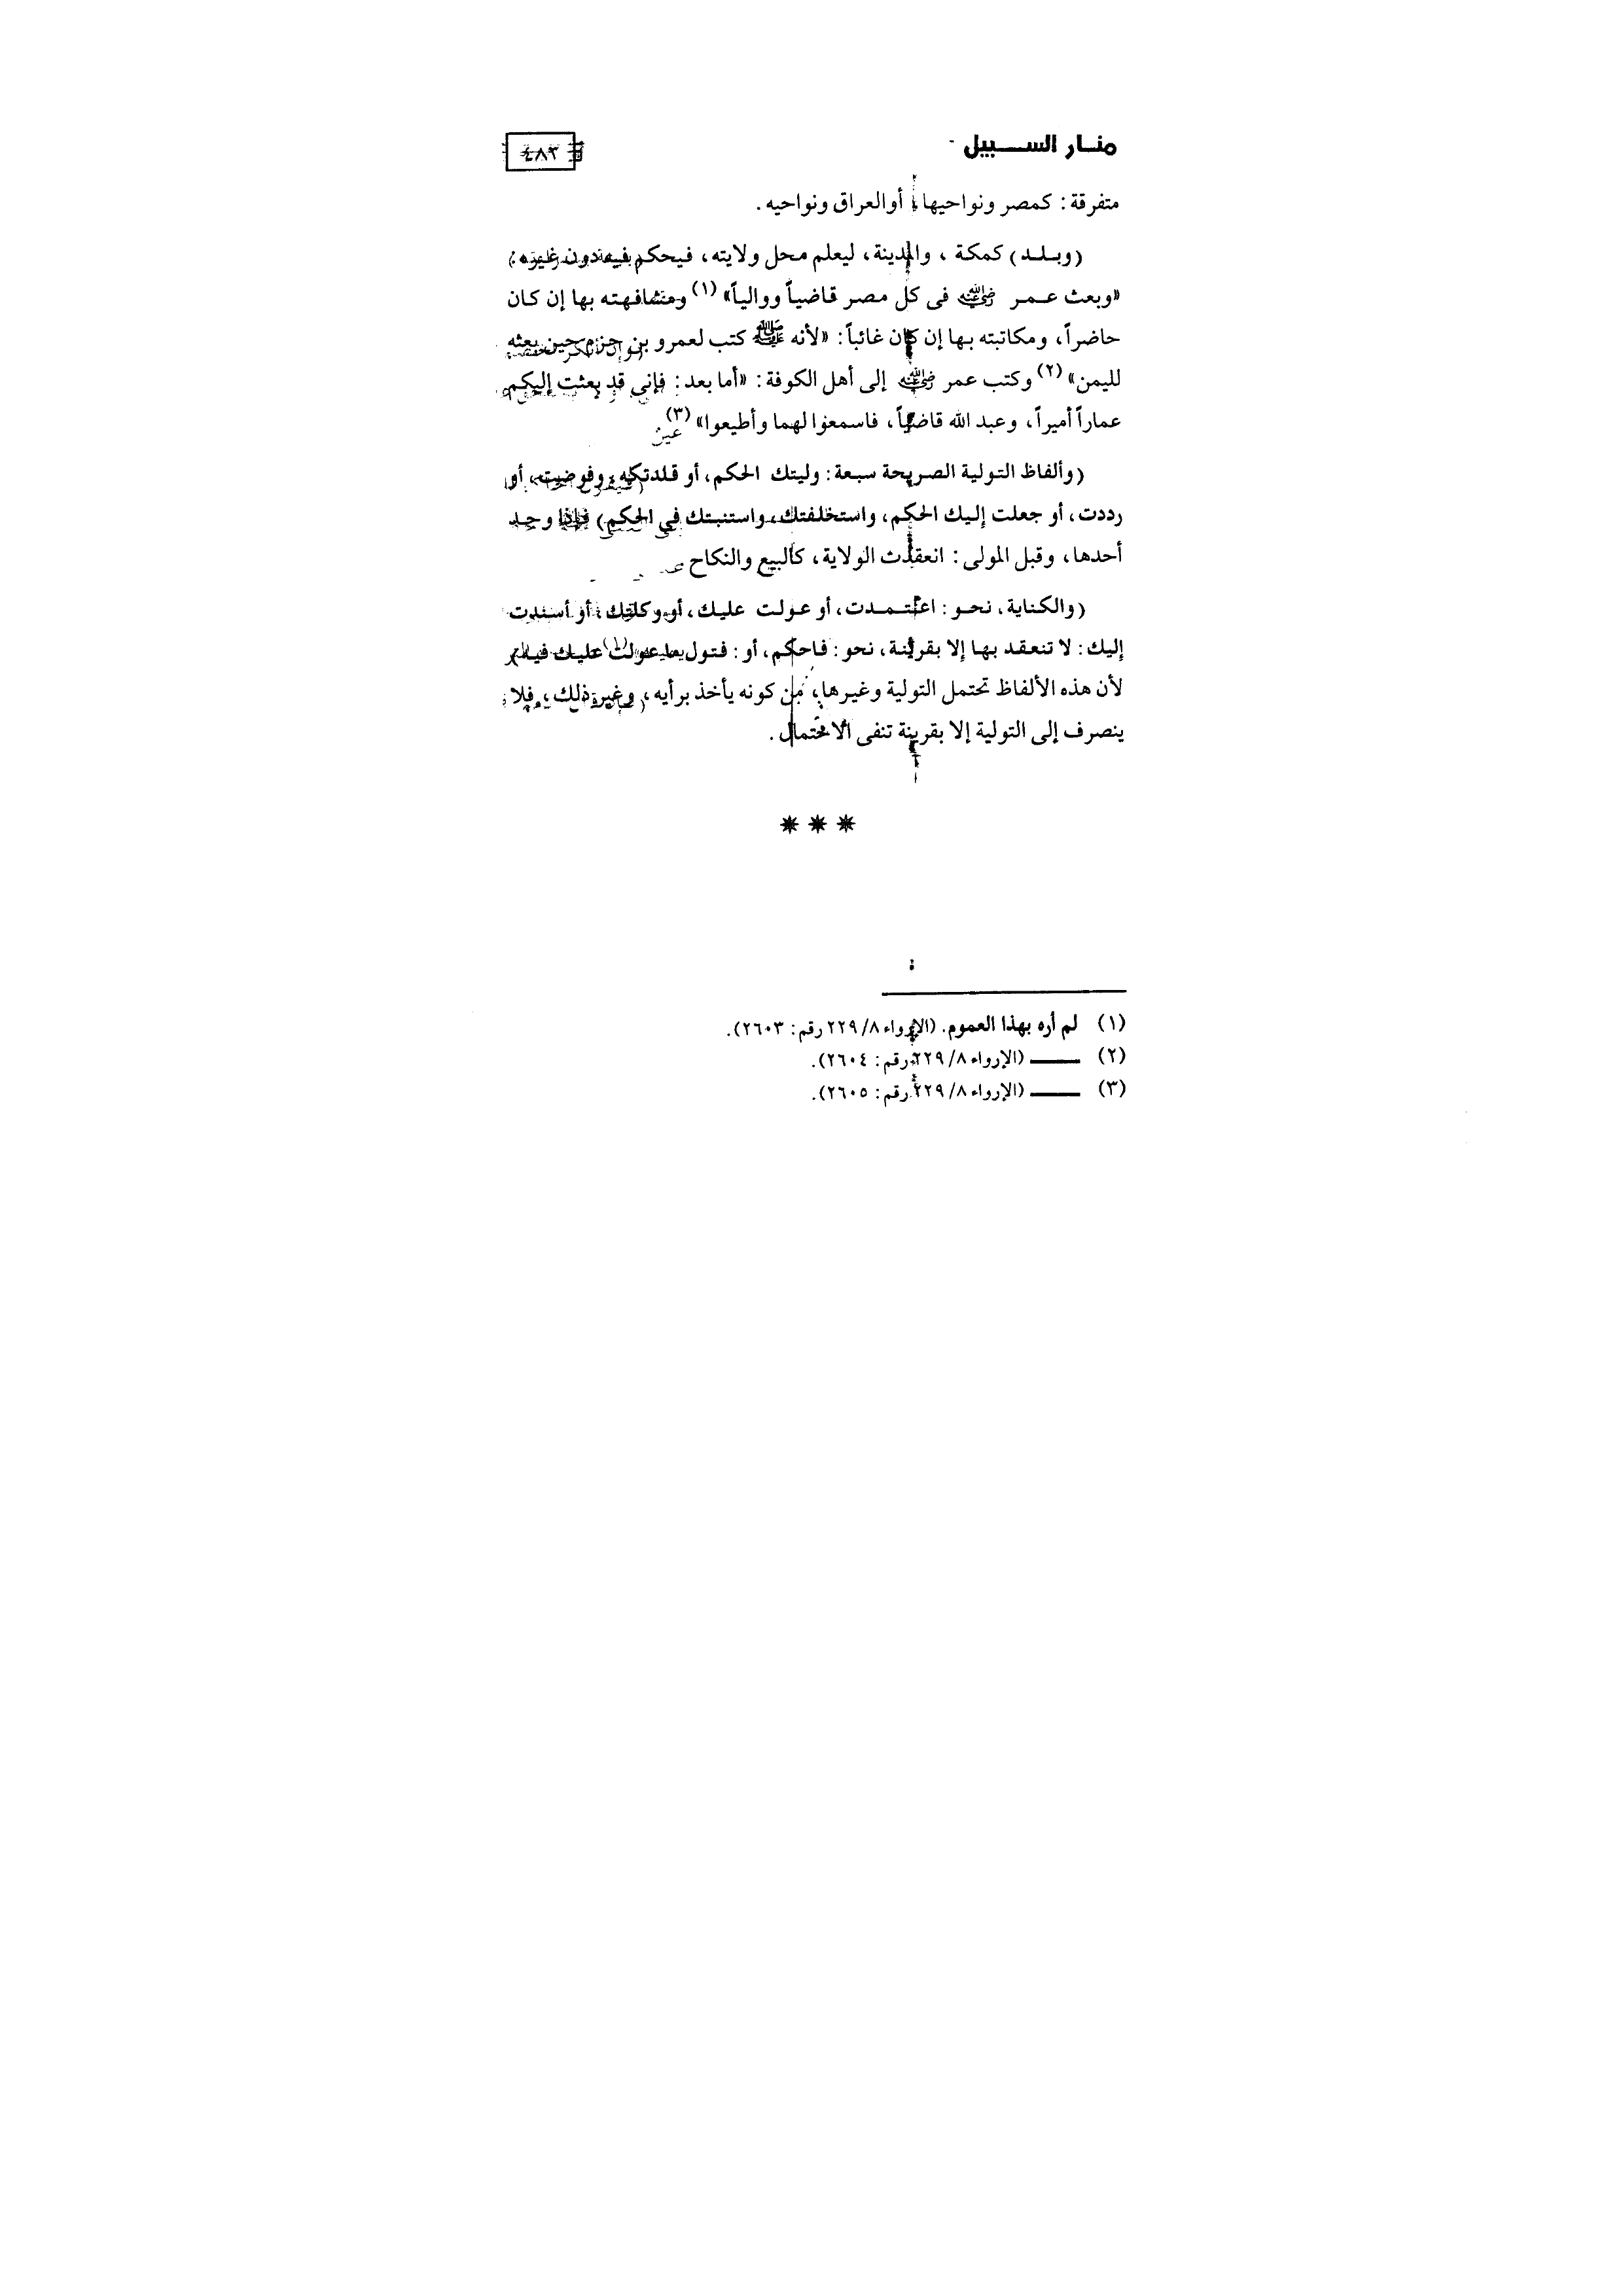 منار السبيل
٤٨٣
متفرقة: كمصر ونواحيها، أوالعراق ونواحيه.
(وبلد) كمكة، والمدينة، ليعلم محل ولايته، فيحكم فيه دون غيره:
«وبعث عمر رضي الله عنه فى كل مصر قاضياً ووالياً» (١) ومشافهته بها إن كان
حاضراً، ومكاتبته بها إن كان غائباً: «لأنه ﷺ كتب لعمرو بن حزم حين بعثه
لليمن» (٢) وكتب عمر رضي الله عنه إلى أهل الكوفة: «أما بعد: فإني قد بعثت إليكم
عماراً أميراً، وعبد الله قاضياً، فاسمعوا لهما وأطيعوا» (٣)
(وألفاظ التولية الصريحة سبعة: وليتك الحكم، أو قلدتكه، وفوضت، أو
رددت، أو جعلت إليك الحكم، واستخلفتك، واستنبتك في الحكم) فإذا وجد
أحدها، وقبل المولى: انعقدت الولاية، كالبيع والنكاح
(والكناية، نحو: اعتمدت، أو عولت عليك، أو وكلتك، أو أسندت
إليك: لا تنعقد بها إلا بقرينة، نحو: فاحكم، أو: فتول ما عولت عليك فيه)
لأن هذه الألفاظ تحتمل التولية وغيرها، من كونه يأخذ برأيه، وغير ذلك، فلا
ينصرف إلى التولية إلا بقرينة تنفى الاحتمال.
(١) لم أره بهذا العموم. (الإرواء ٨/ ٢٢٩ رقم: ٢٦٠٣).
(٢) (الإرواء ٨/ ٢٢٩ رقم: ٢٦٠٤).
(٣) (الإرواء ٨/ ٢٢٩ رقم: ٢٦٠٥).